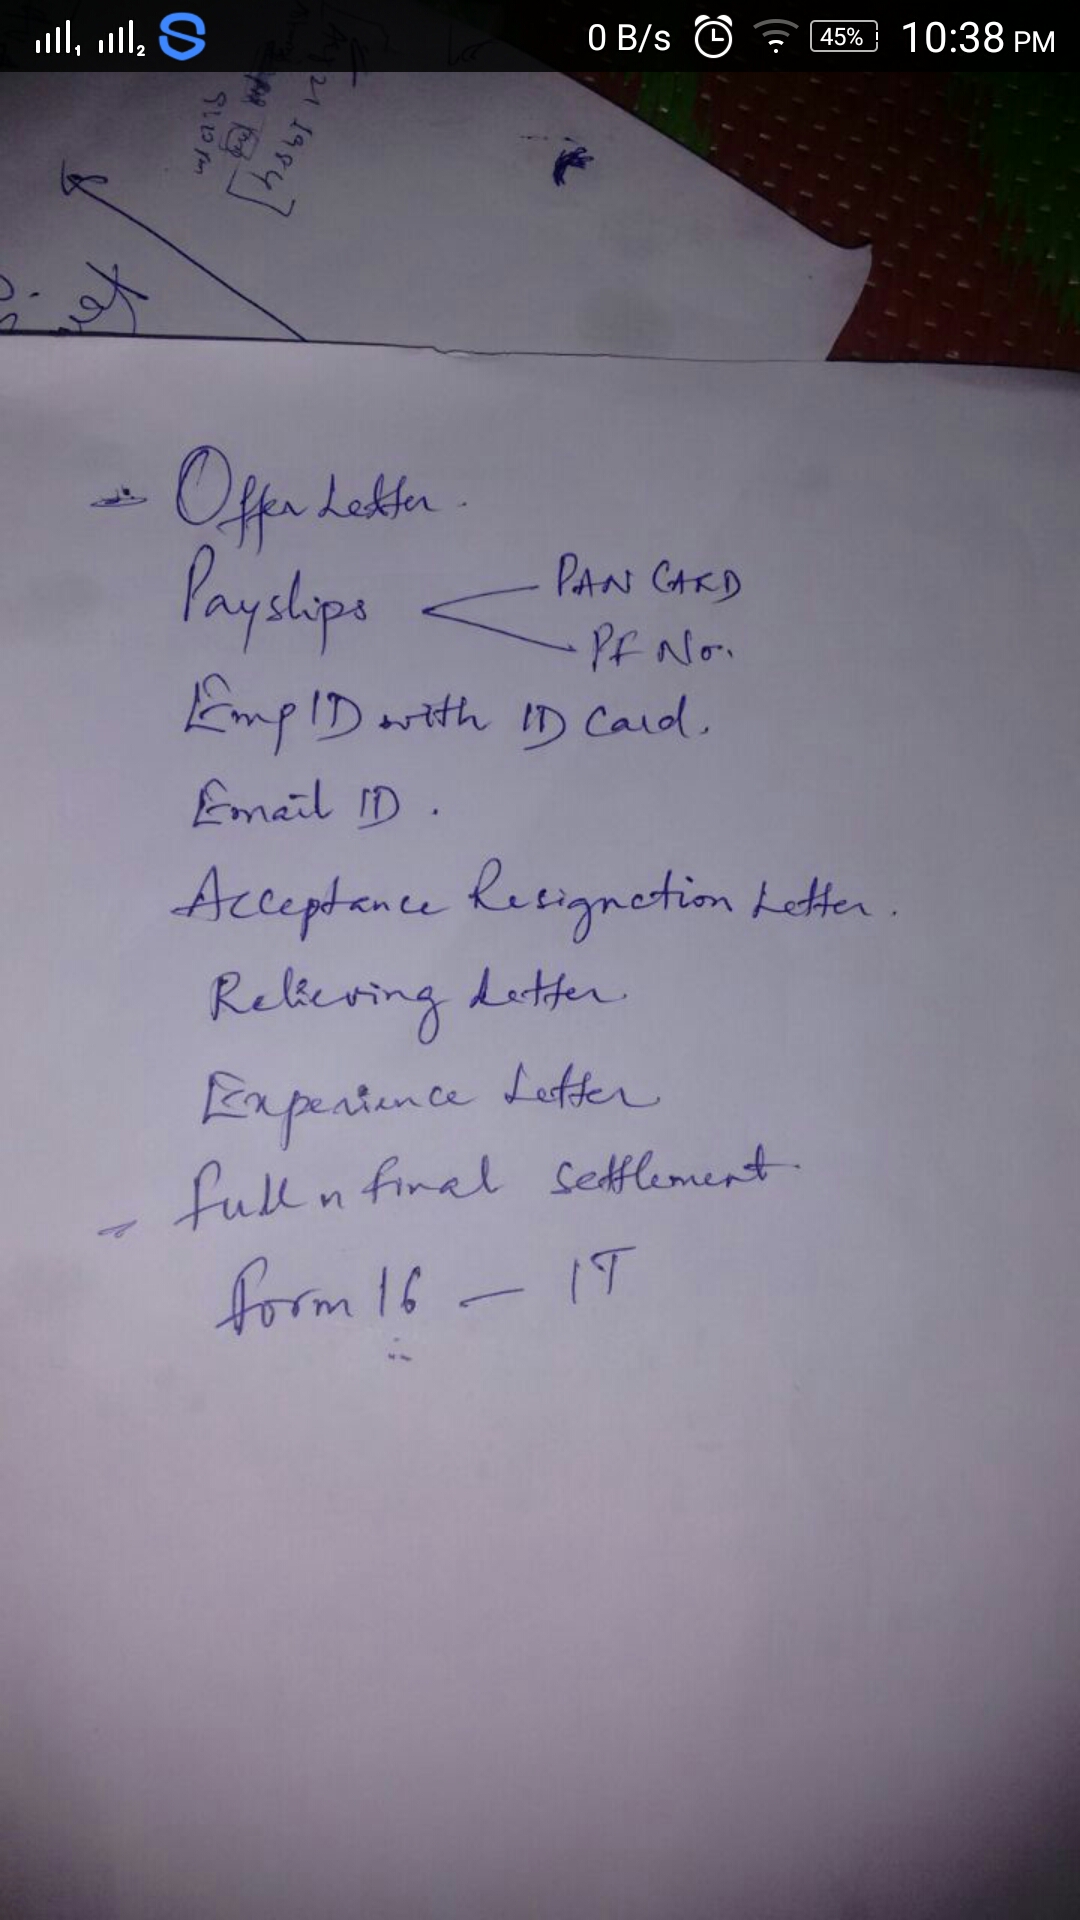 0 B/s 45% 10:38 PM
Offer Letter.
Payslips PAN CARD
PF No.
Emp ID with ID Card.
Email ID.
Acceptance Resignation Letter.
Relieving Letter.
Experience Letter
full n final settlement.
form 16 — IT